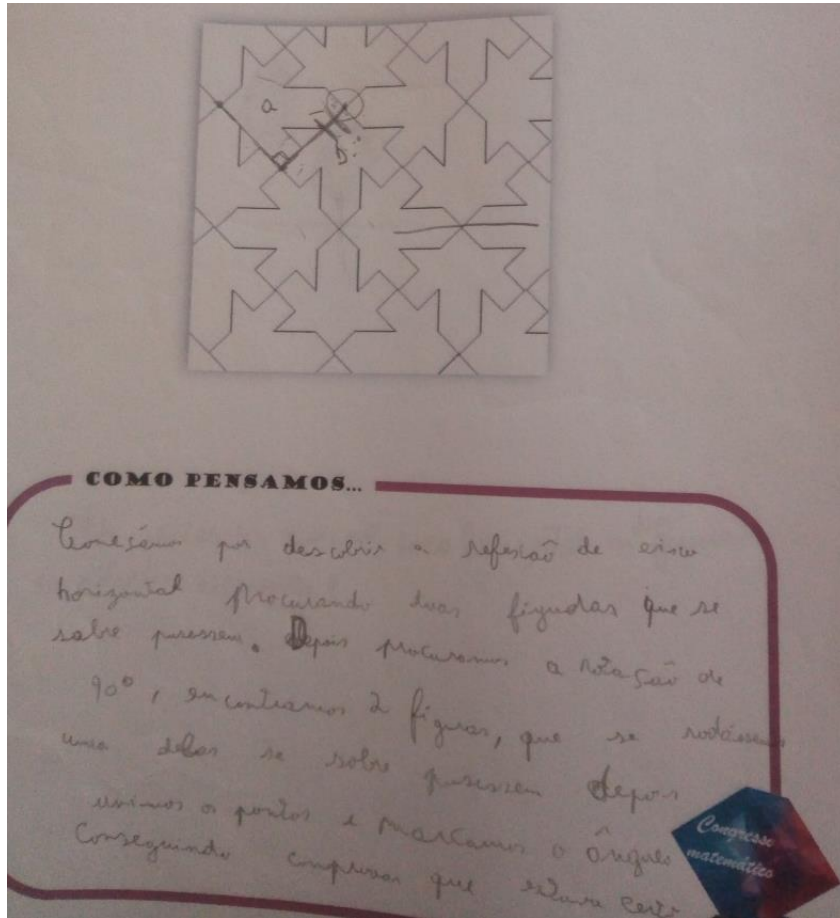 a
COMO PENSAMOS...
Começámos por descobrir a reflexão de eixo
horizontal procurando duas figudas que se
sobre pusessem. Depois procuramos a rotação de
90°, encontramos 2 figuras, que se rodássemos
uma delas se sobre pusessem depois
unimos os pontos e marcamos o ângulo
Conseguindo comprovar que estava certo
Congresso
matemático